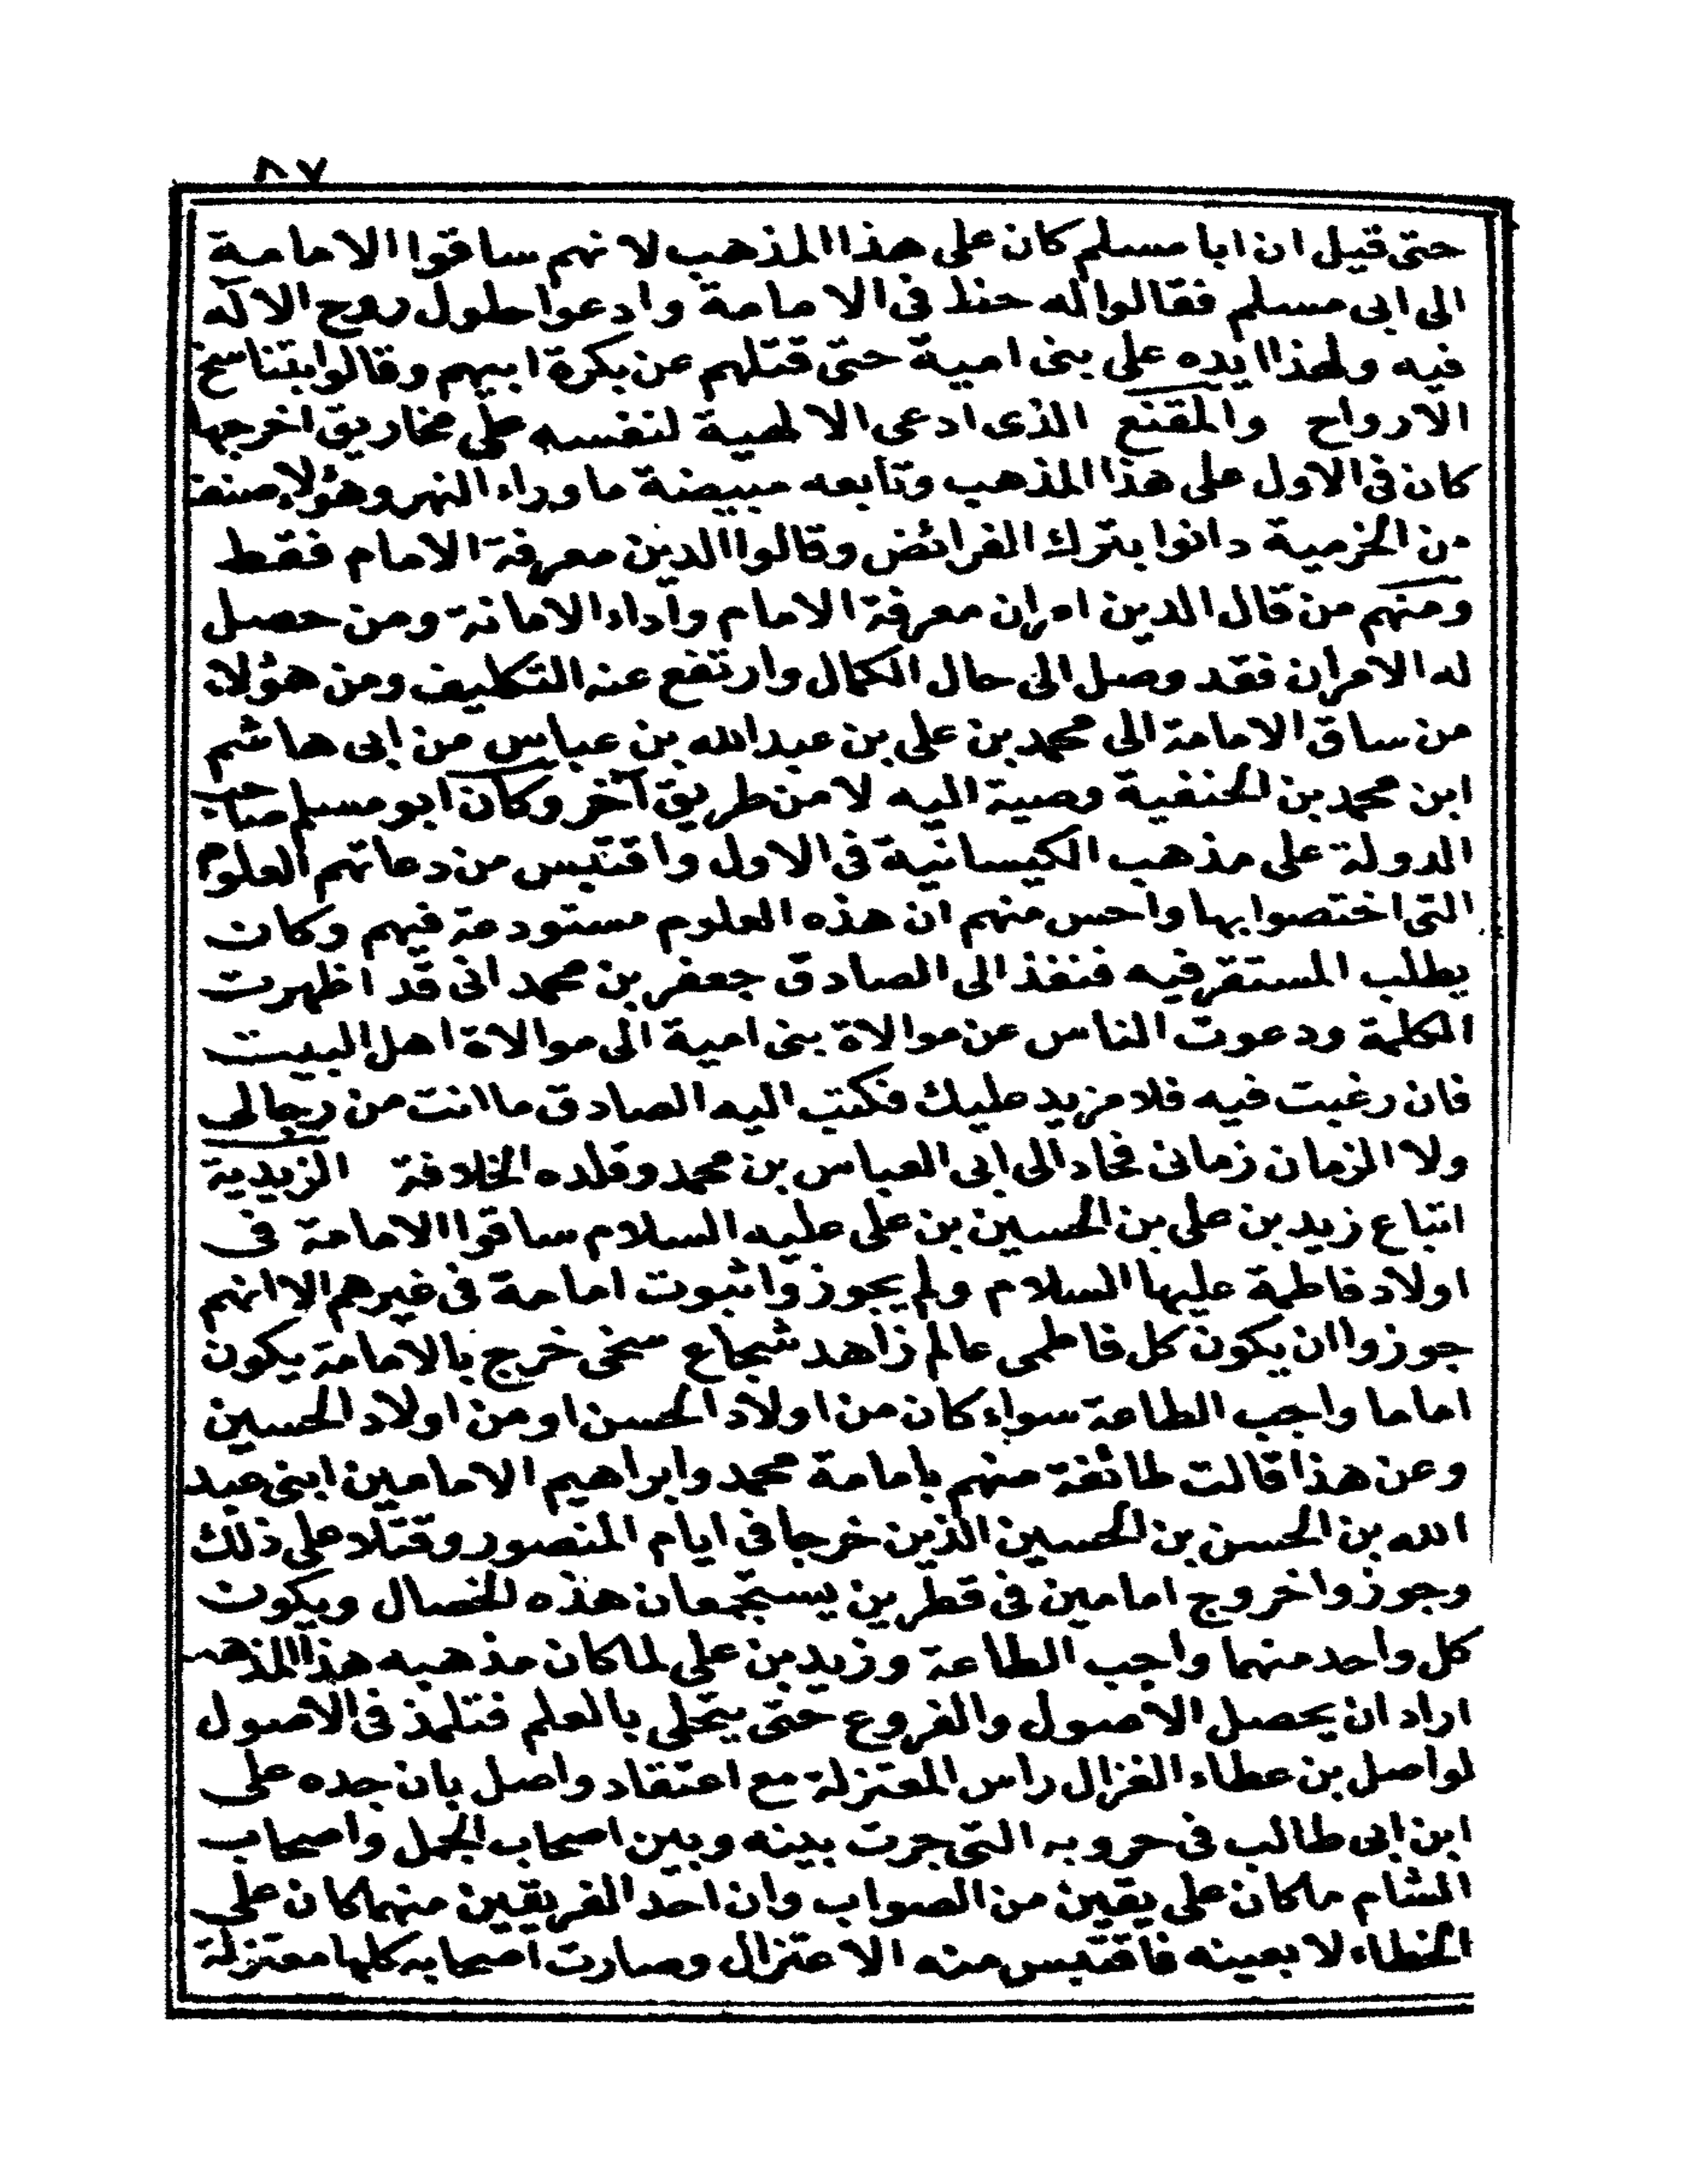 ٨٧
حتى قيل ان ابا مسلم كان على هذا المذهب لانهم ساقوا الامامة
الى ابى مسلم فقالوا له حظ فى الامامة وادعوا حلول روح الاله
فيه ولهذا ايده على بنى امية حتى قتلهم عن بكرة ابيهم وقالوا بتناسخ
الارواح والمقنع الذى ادعى الالهية لنفسه على مخاريق اخرجها
كان فى الاول على هذا المذهب وتابعه مبيضة ماوراء النهر وهؤلاء صنف
من الخرمية دانوا بترك الفرائض وقالوا الدين معرفة الامام فقط
ومنهم من قال الدين امران معرفة الامام واداء الامانة ومن حصل
له الامران فقد وصل الى حال الكمال وارتفع عنه التكليف ومن هؤلاء
من ساق الامامة الى محمد بن على بن عبدالله بن عباس من ابى هاشم
ابن محمد بن الحنفية وصية اليه لا من طريق آخر وكان ابو مسلم صاحب
الدولة على مذهب الكيسانية فى الاول واقتبس من دعاتهم العلوم
التى اختصوا بها واحس منهم ان هذه العلوم مستودعة فيهم وكان
يطلب المستقر فيه فنفذ الى الصادق جعفر بن محمد انى قد اظهرت
الكلمة ودعوت الناس عن موالاة بنى امية الى موالاة اهل البيت
فان رغبت فيه فلا مزيد عليك فكتب اليه الصادق ما انت من رجالى
ولا الزمان زمانى فحاد الى ابى العباس بن محمد وقلده الخلافة الزيدية
اتباع زيد بن على بن الحسين بن على عليه السلام ساقوا الامامة فى
اولاد فاطمة عليها السلام ولم يجوزوا ثبوت امامة فى غيرهم الا انهم
جوزوا ان يكون كل فاطمى عالم زاهد شجاع سخى خرج بالامامة يكون
اماما واجب الطاعة سواء كان من اولاد الحسن او من اولاد الحسين
وعن هذا قالت طائفة منهم بامامة محمد وابراهيم الامامين ابنى عبد
الله بن الحسن بن الحسين الذين خرجا فى ايام المنصور وقتلا على ذلك
وجوزوا خروج امامين فى قطرين يستجمعان هذه الخصال ويكون
كل واحد منهما واجب الطاعة وزيد بن على لما كان مذهبه هذا المذهب
اراد ان يحصل الاصول والفروع حتى يتحلى بالعلم فتلمذ فى الاصول
لواصل بن عطاء الغزال راس المعتزلة مع اعتقاد واصل بان جده على
ابن ابى طالب فى حروبه التى جرت بينه وبين اصحاب الجمل واصحاب
الشام ما كان على يقين من الصواب وان احد الفريقين منهما كان على
الخطاء لا بعينه فاقتبس منه الاعتزال وصارت اصحابه كلها معتزلة